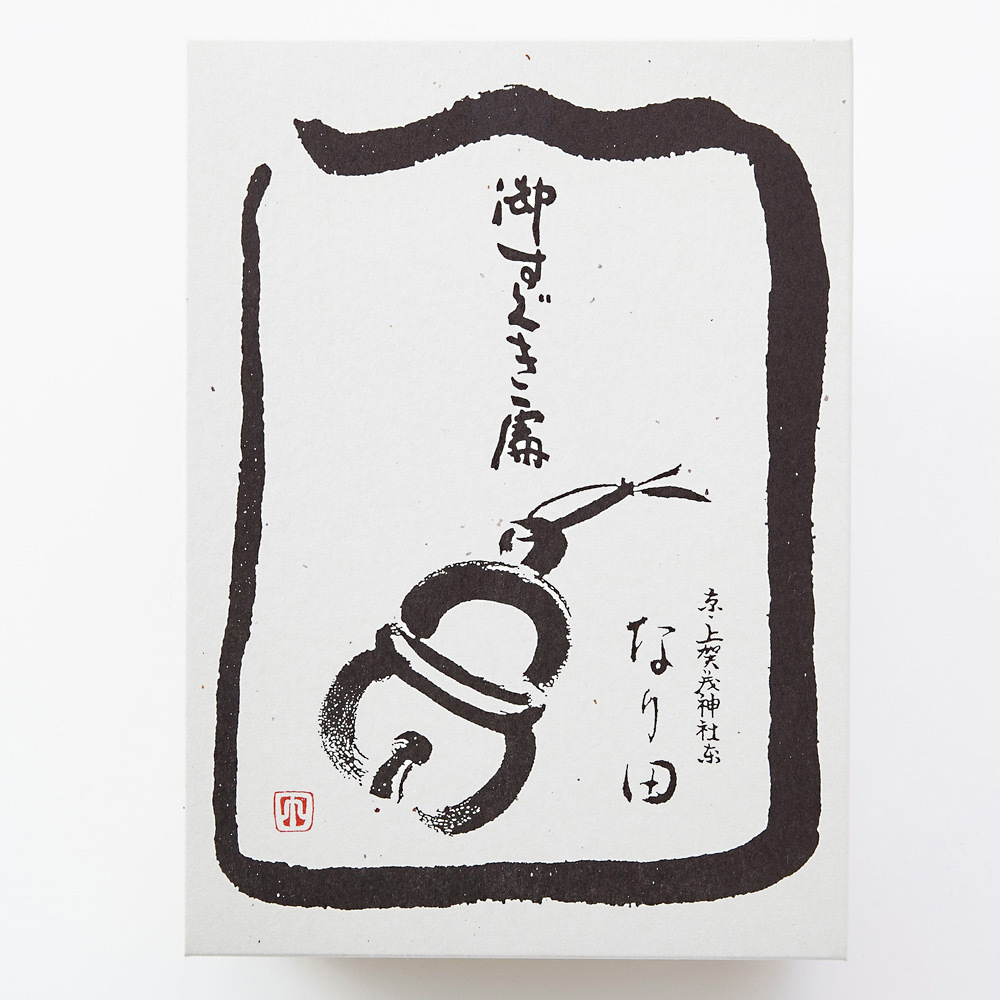 御すぐき處
京・上賀茂神社東
なり田